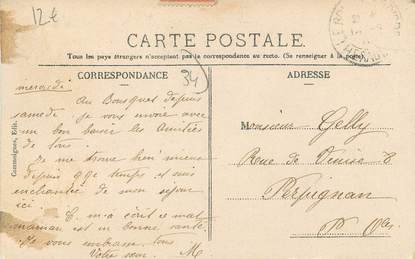 12€
CARTE POSTALE
Tous les pays étrangers n'acceptent pas la correspondance au recto. (Se renseigner à la poste.)
CORRESPONDANCE
34
ADRESSE
mercredi
Au Bousquet depuis
samedi Je vous envoie avec
un bon baiser les Amitiés
de tous.
Je me trouve bien mieux
depuis qqe temps et suis
enchantée de mon séjour
ici.
m'a écrit ce mat
maman est en bonne santé
Je vous embrasse tous
Votre sœur. M
Monsieur Gelly
Rue de Venise 8
Perpignan
P. Oles